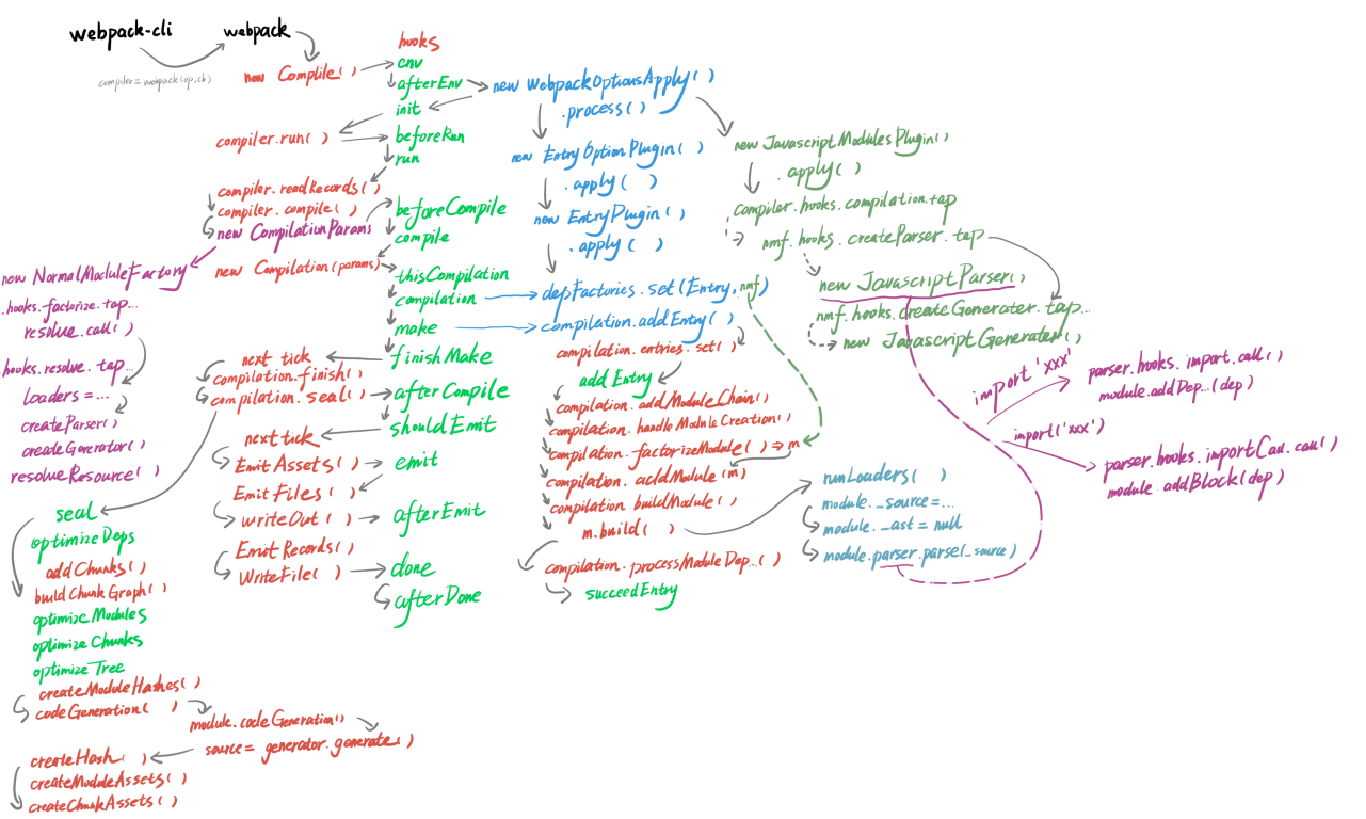 webpack-cli
webpack
compiler=webpack(op,cb)
new Complile()
hooks
env
afterEnv
init
beforeRun
run
beforeCompile
compile
thisCompilation
compilation
make
finishMake
afterCompile
shouldEmit
emit
afterEmit
done
afterDone
compiler.run()
compiler.readRecords()
compiler.compile()
new CompilationParams
new Compilation(params)
next tick
compilation.finish()
compilation.seal()
next tick
EmitAssets()
EmitFiles()
writeOut()
EmitRecords()
WriteFile()
new NormalModuleFactory
.hooks.factorize.tap...
resolve.call()
.hooks.resolve.tap...
loaders=...
createParser()
createGenerator()
resolveResource()
seal
optimizeDeps
addChunks()
buildChunkGraph()
optimizeModules
optimizeChunks
optimizeTree
createModuleHashes()
codeGeneration()
module.codeGeneration()
source= generator.generate()
createHash()
createModuleAssets()
createChunkAssets()
new WebpackOptionsApply()
.process()
new EntryOptionPlugin()
.apply()
new EntryPlugin()
.apply()
depFactories.set(Entry,nmf)
compilation.addEntry()
compilation.entries.set()
addEntry
compilation.addModuleChain()
compilation.handleModuleCreation()
compilation.factorizeModule()=>m
compilation.addModule(m)
compilation.buildModule()
m.build()
compilation.processModuleDep...()
succeedEntry
new JavascriptModulesPlugin()
.apply()
compiler.hooks.compilation.tap
nmf.hooks.createParser.tap
new JavascriptParser()
nmf.hooks.createGenerater.tap...
new JavascriptGenerater()
import 'xxx'
parser.hooks.import.call()
module.addDep...(dep)
import('xxx')
parser.hooks.importCall.call()
module.addBlock(dep)
runLoaders()
module._source=...
module._ast=null
module.parser.parse(_source)